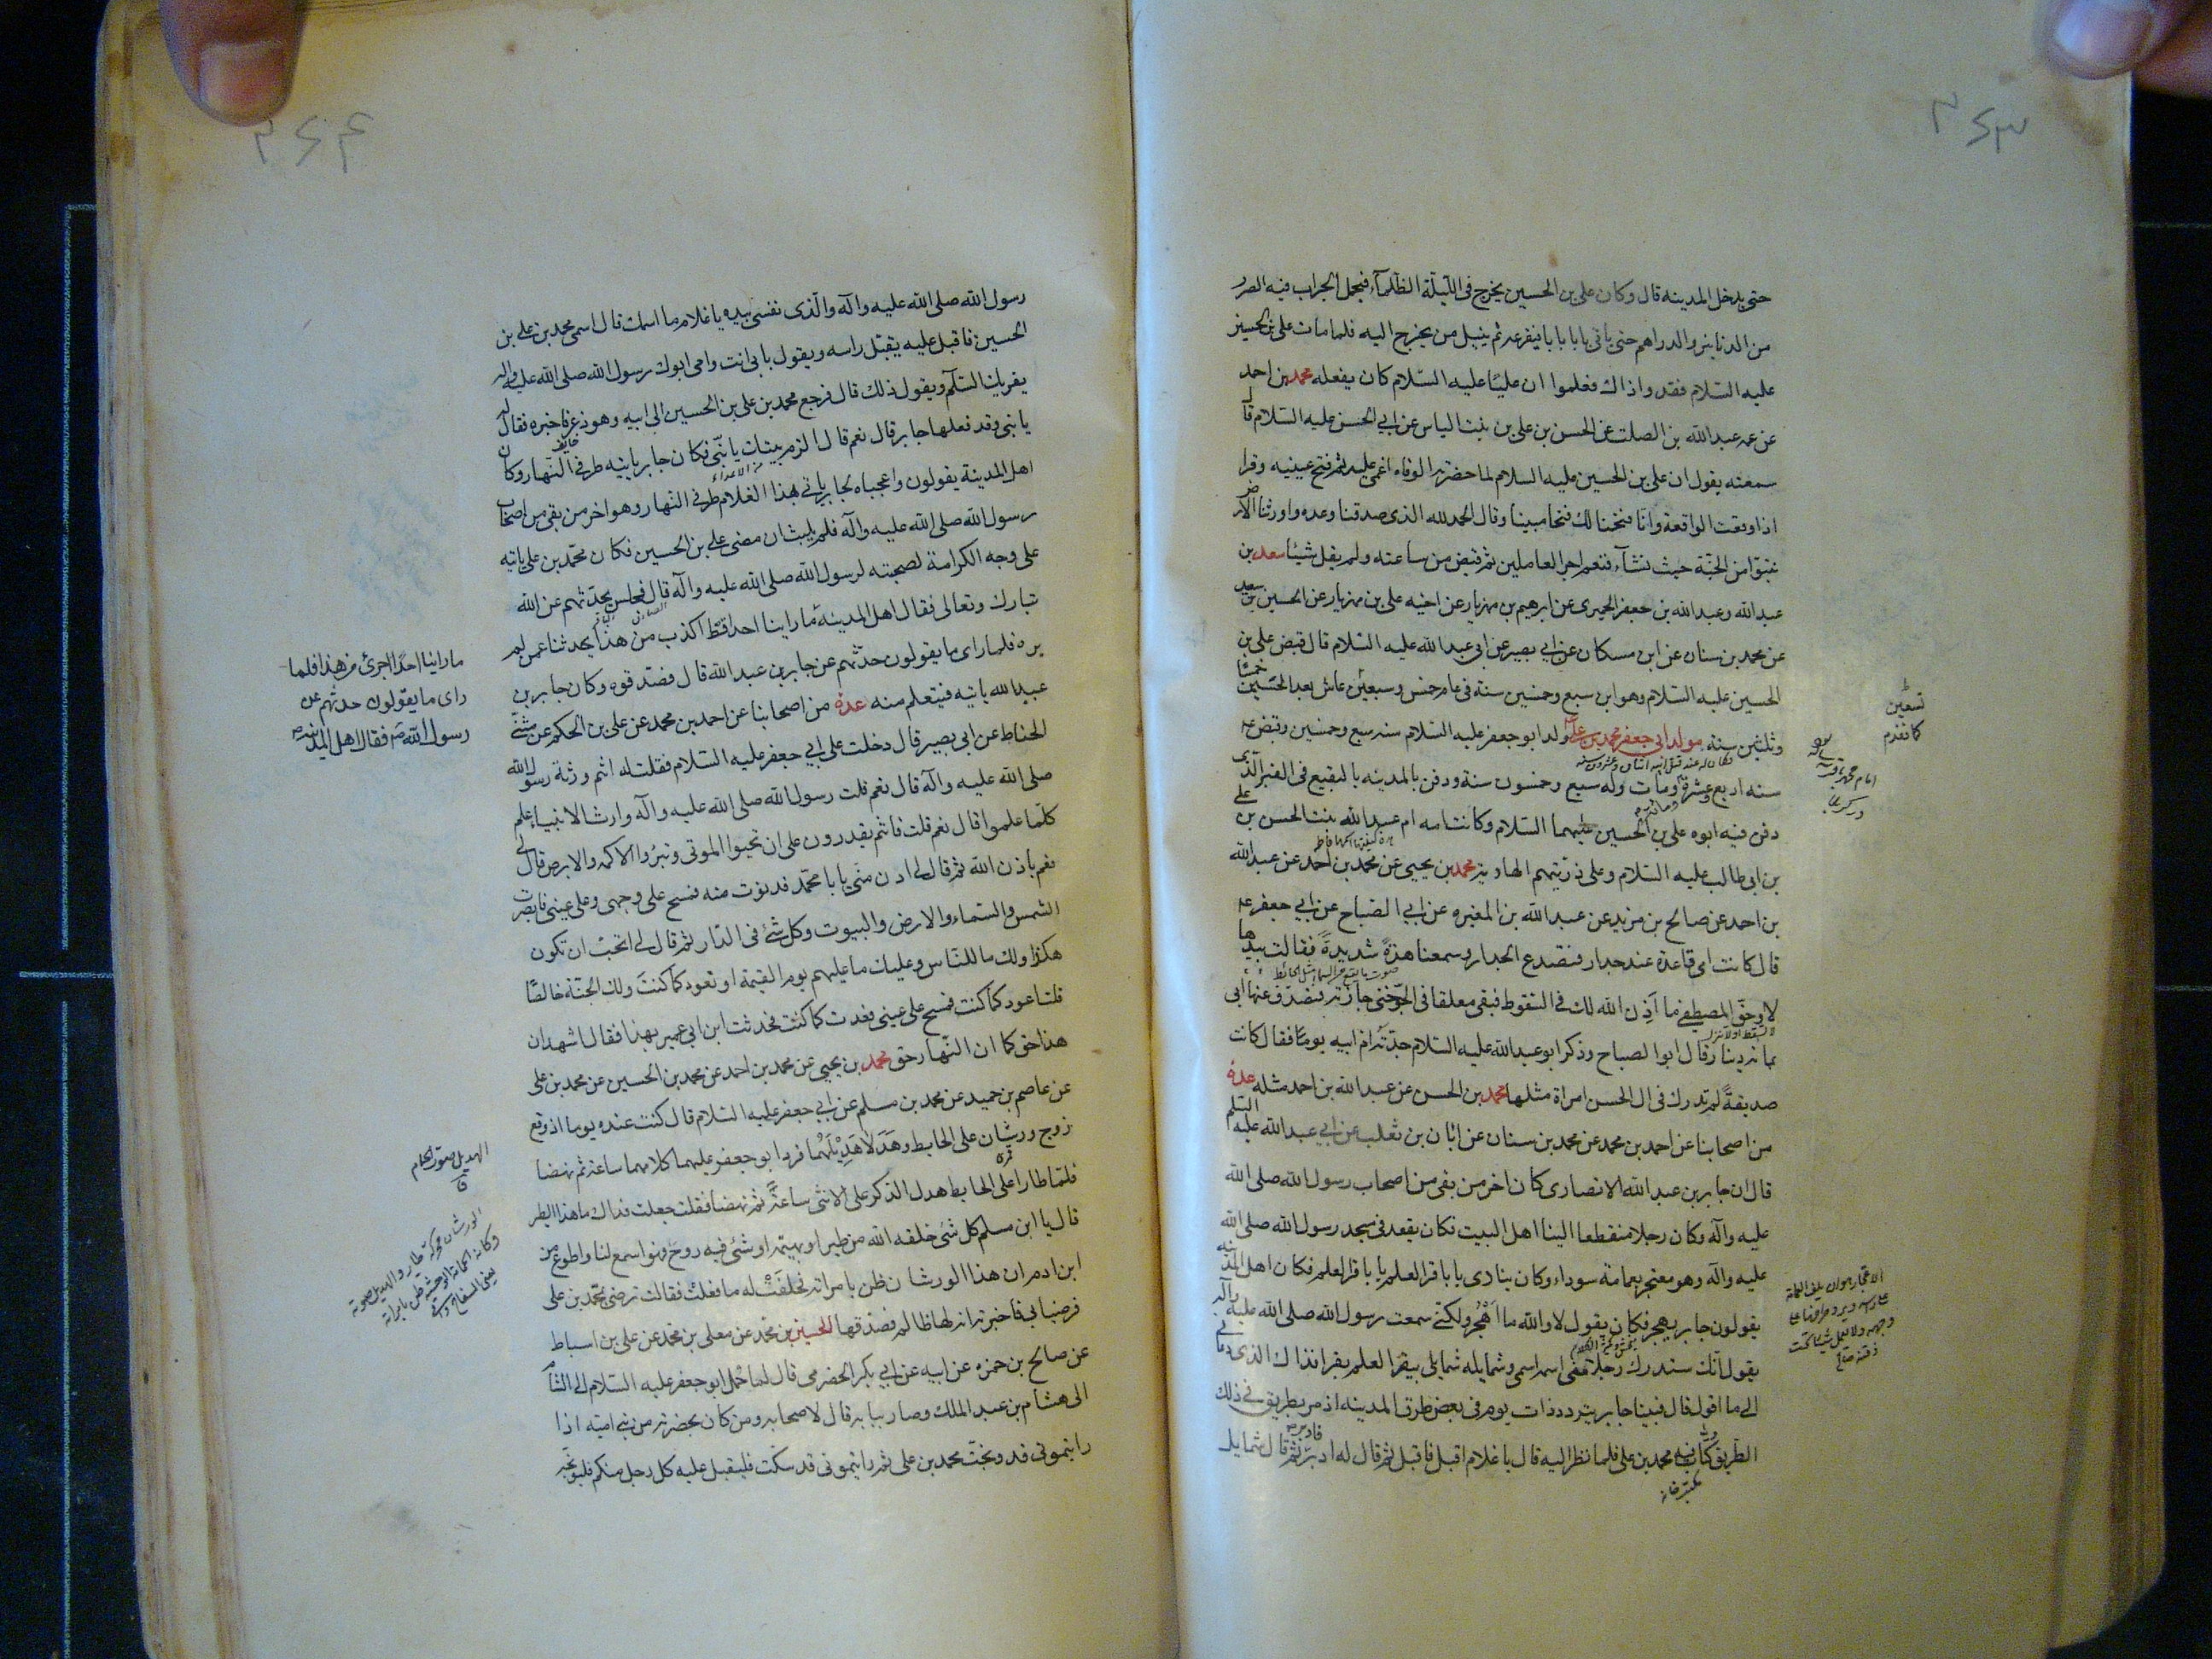 ۲۶۳
حتى يدخل المدينه قال وكان على بن الحسين يخرج فى الليلة الظلمآء فيحمل الجراب فيه الصرر
من الدنانير والدراهم حتى ياتى بابا بابا فيقرعه ثم ينيل من يخرج اليه فلما مات على بن الحسين
عليه السلام فقدوا ذاك فعلموا ان عليًا عليه السلام كان يفعله محمد بن احمد
عن عمه عبد الله بن الصلت عن الحسن بن على بن بنت الياس عن ابي الحسن عليه السلام قال
سمعته يقول ان على بن الحسين عليه السلام لما حضرته الوفاه اغمى عليه ثم فتح عينيه وقرا
اذا وقعت الواقعة وانا فتحنا لك فتحا مبينا وقال الحمد لله الذى صدقنا وعده واورثنا الارض
نتبوا من الجنة حيث نشآء فنعم اجر العاملين ثم قبض من ساعته ولم يقل شيئا سعد بن
عبد الله وعبد الله بن جعفر الحميرى عن ابرهيم بن مهزيار عن اخيه على بن مهزيار عن الحسين بن سعيد
عن محمد بن سنان عن ابن مسكان عن ابي بصير عن ابى عبد الله عليه السلام قال قبض على بن
الحسين عليه السلام وهو ابن سبع وخمسين سنة فى عام خمس وسبعين عاش بعد الحسين خمسًا
وثلثين سنة مولد ابى جعفر محمد بن على ولد ابو جعفر عليه السلام سنه سبع وخمسين وقبض ع
سنه اربع عشرة ومات وله سبع وخمسون سنة ودفن بالمدينه بالبقيع فى القبر الذى
دفن فيه ابوه على بن الحسين عليهما السلام وكانت امه ام عبد الله بنت الحسن بن على
بن ابى طالب عليه السلام وعلى ذريتهم الهادية محمد بن يحيى عن محمد بن احمد عن عبد الله
بن احمد عن صالح بن مزيد عن عبد الله بن المغيره عن ابي الصباح عن ابي جعفر ع
قال كانت امى قاعدة عند جدار فتصدع الجدار وسمعنا هدة شديدة فقالت بيدها
لا وحق المصطفى ما اذن الله لك فى السقوط فبقى معلقا فى الجو حتى جازته فتصدق عنها ابى
بمائه دينار قال ابو الصباح وذكر ابو عبد الله عليه السلام جدته ام ابيه يوما فقال كانت
صديقة لم تدرك فى ال الحسن امراة مثلها محمد بن الحسن عن عبد الله بن احمد مثله عدة
من اصحابنا عن احمد بن محمد عن محمد بن سنان عن ابان بن تغلب عن ابي عبد الله عليه السلم
قال ان جابر بن عبد الله الانصارى كان اخر من بقى من اصحاب رسول الله صلى الله
عليه وآله وكان رجلا منقطعا الينا اهل البيت فكان يقعد فى مسجد رسول الله صلى الله
عليه وآله وهو معتجر بعمامة سوداء وكان ينادى يا باقر العلم يا باقر العلم فكان اهل المدينه
يقولون جابر يهجر فكان يقول لا والله ما اهجر ولكنى سمعت رسول الله صلى الله عليه وآله
يقول انك ستدرك رجلا منى اسمه اسمى وشمايله شمايلى يبقر العلم بقرا فذاك الذى دعانى
الى ما اقول قال فبينا جابر يتردد ذات يوم فى بعض طرق المدينه اذ مر بطريق فى ذلك
الطريق كتاب فيه محمد بن على فلما نظر اليه قال يا غلام اقبل فاقبل ثم قال له ادبر ثم قال شمايل
تسعين
كما تقدم
۲۶۴
رسول الله صلى الله عليه وآله والذى نفسى بيده يا غلام ما اسمك قال اسمى محمد بن على بن
الحسين فاقبل عليه يقبل راسه ويقول بابى انت وامى ابوك رسول الله صلى الله عليه واله
يقريك السلام ويقول ذلك قال فرجع محمد بن على بن الحسين الى ابيه وهو ذعر فاخبره فقال له
يا بنى وقد فعلها جابر قال نعم قال الزم بيتك يا بنى فكان جابر ياتيه طرفى النهار وكان
اهل المدينة يقولون واعجباه لجابر ياتى هذا الغلام طرفى النهار وهو اخر من بقى من اصحاب
رسول الله صلى الله عليه وآله فلم يلبث ان مضى على بن الحسين فكان محمد بن على ياتيه
على وجه الكرامة لصحبته لرسول الله صلى الله عليه وآله قال فجلس يحدثهم عن الله
تبارك وتعالى فقال اهل المدينة ما راينا احدا قط اكذب من هذا يحدثنا عمن لم
يره فلما راى ما يقولون حدثهم عن جابر بن عبد الله قال فصدقوه وكان جابر بن
عبد الله ياتيه فيتعلم منه عدة من اصحابنا عن احمد بن محمد عن على بن الحكم عن مثنى
الحناط عن ابى بصير قال دخلت على ابي جعفر عليه السلام فقلت له انتم ورثة رسول الله
صلى الله عليه وآله قال نعم قلت رسول الله صلى الله عليه وآله وارث الانبياء علم
كلما علموا قال نعم قلت فانتم تقدرون على ان تحيوا الموتى وتبرؤا الاكمه والابرص قال لى
نعم باذن الله ثم قال لى ادن منى يا با محمد فدنوت منه فمسح على وجهى وعلى عينى فابصرت
الشمس والسماء والارض والبيوت وكل شئ فى الدار ثم قال لى اتحب ان تكون
هكذا ولك ما للناس وعليك ما عليهم يوم القيمة او تعود كما كنت ولك الجنة خالصًا
قلت اعود كما كنت فمسح على عينى فعدت كما كنت فحدثت ابن ابى عمير بهذا فقال اشهد ان
هذا حق كما ان النهار حق محمد بن يحيى عن محمد بن احمد عن محمد بن الحسين عن محمد بن على
عن عاصم بن حميد عن محمد بن مسلم عن ابي جعفر عليه السلام قال كنت عنده يوما اذ وقع
زوج ورشان على الحايط وهدلا هديلهما فرد ابو جعفر عليهما كلامهما ساعة ثم نهضا
فلما طارا على الحايط هدل الذكر على الانثى ساعة ثم نهضا فقلت جعلت فداك ما هذا الطير
قال يا ابن مسلم كل شئ خلقه الله من طير او بهيمة او شئ فيه روح فهو اسمع لنا واطوع من
ابن ادم ان هذا الورشان ظن بامراته فحلفت له ما فعلت فقالت ترضى بمحمد بن على
فرضيا بى فاخبرته انه لها ظالم فصدقها الحسين بن محمد عن معلى بن محمد عن على بن اسباط
عن صالح بن حمزه عن ابيه عن ابي بكر الحضرمى قال لما حمل ابو جعفر عليه السلام الى الشام
الى هشام بن عبد الملك وصار ببابه قال لاصحابه ومن كان بحضرته من بنى اميه اذا
رايتمونى قد وبخت محمد بن على ثم رايتمونى قد سكت فليقبل عليه كل رجل منكم فليوبخه
ما راينا احدًا اجرئ من هذا فلما
راى ما يقولون حدثهم عن
رسول الله ص فقال اهل المدينه
الهديل صوت الحمام
ق